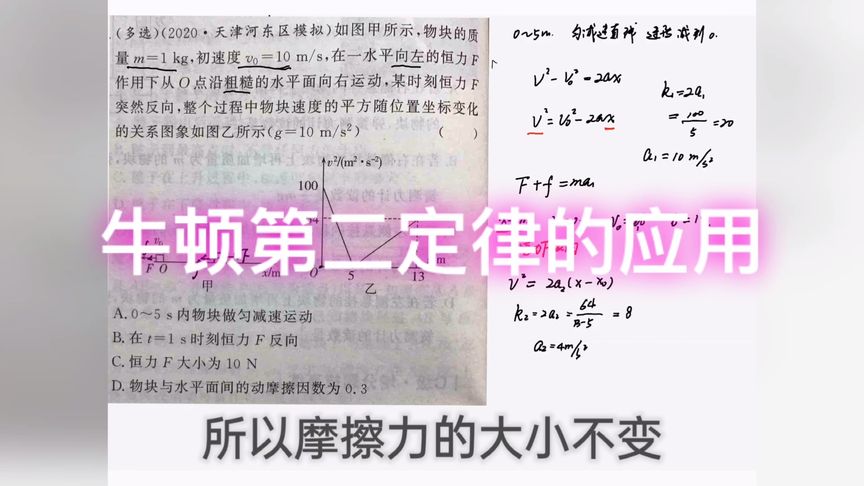 .(多选)(2020·天津河东区模拟)如图甲所示,物块的质
量m=1 kg,初速度v₀=10 m/s,在一水平向左的恒力F
作用下从O点沿粗糙的水平面向右运动,某时刻恒力F
突然反向,整个过程中物块速度的平方随位置坐标变化
的关系图象如图乙所示(g=10 m/s²) ( )
v²/(m²·s⁻²)
100
v₀
F O
x/m
O 5 13
甲 乙
A. 0~5 s内物块做匀减速运动
B. 在t=1 s时刻恒力F反向
C. 恒力F大小为10 N
D. 物块与水平面间的动摩擦因数为0.3
0~5m. 匀减速直线 速度减到0.
V²-V₀²=-2ax
V²=V₀²-2ax
k₁=2a₁
=100/5=20
a₁=10m/s²
F+f=ma₁
V²=2a₂(x-x₀)
k₂=2a₂=64/13-5=8
a₂=4m/s²
牛顿第二定律的应用
所以摩擦力的大小不变